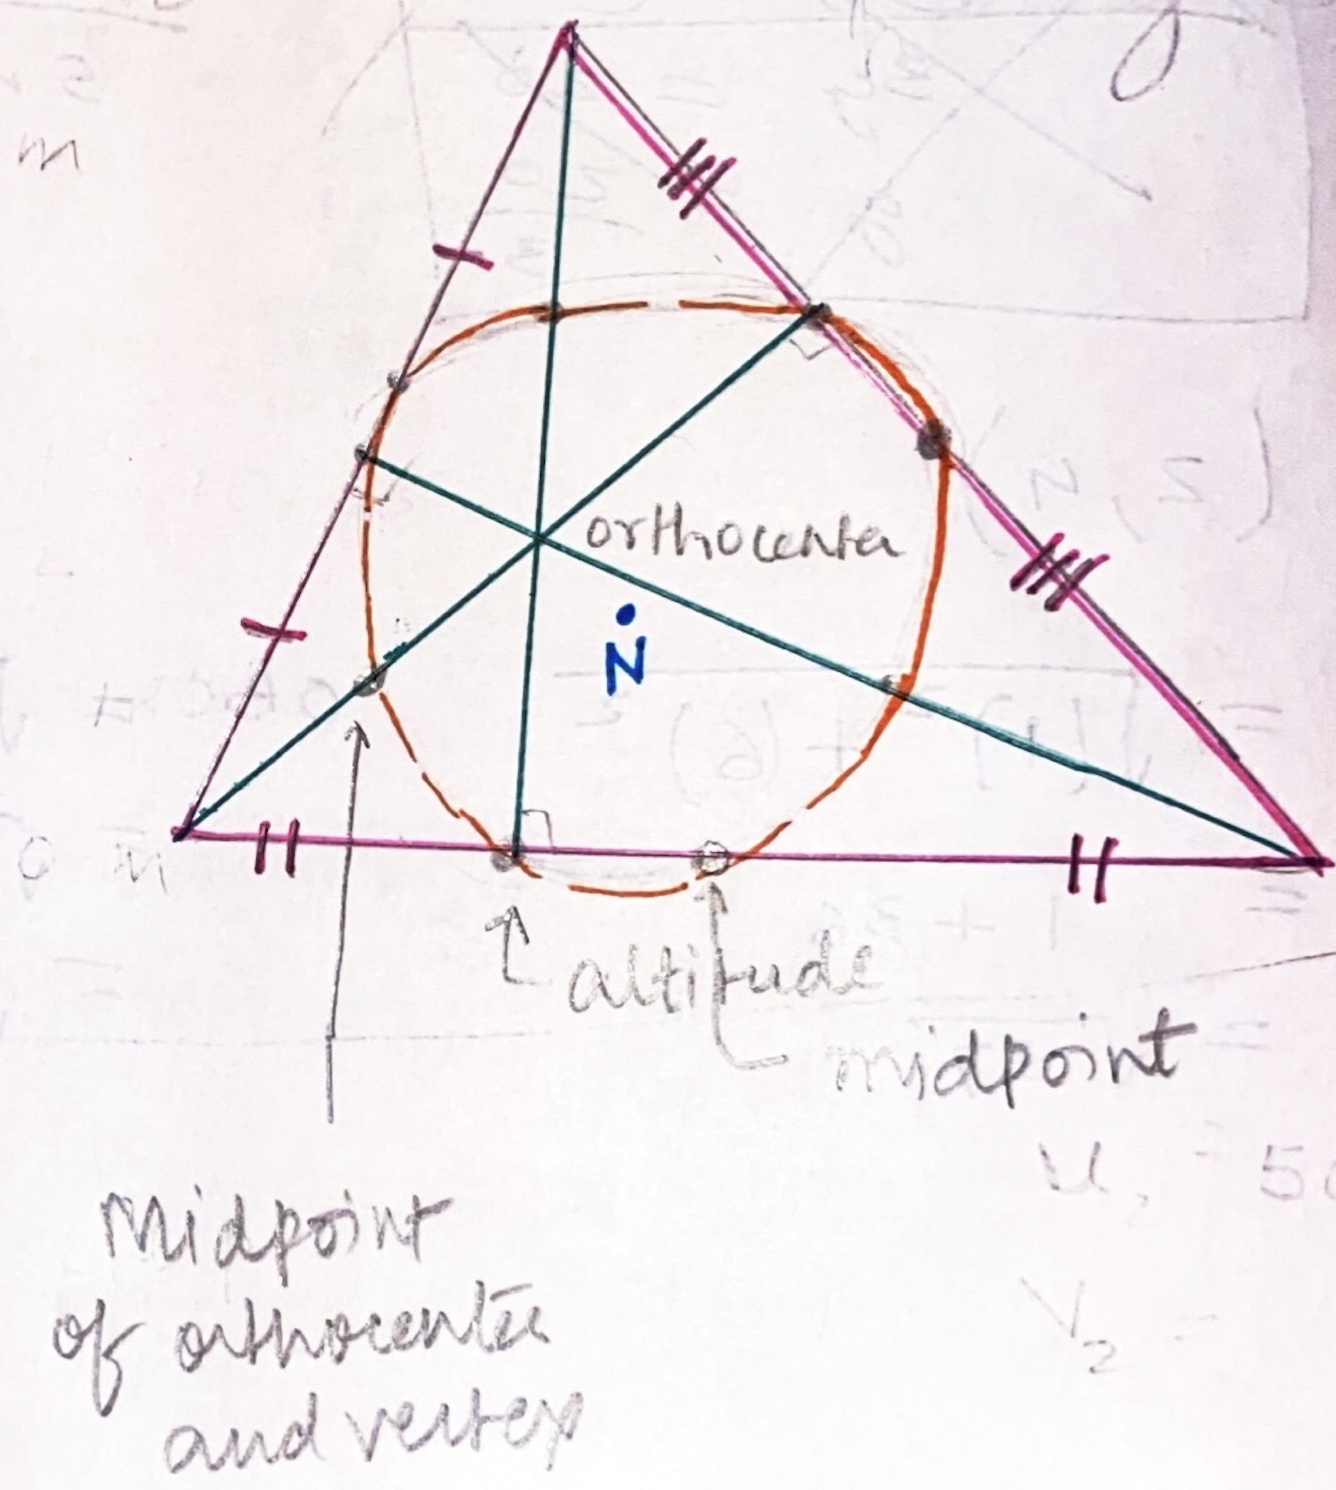 m
orthocenter
N
altitude
midpoint
Midpoint
of orthocenter
and vertex